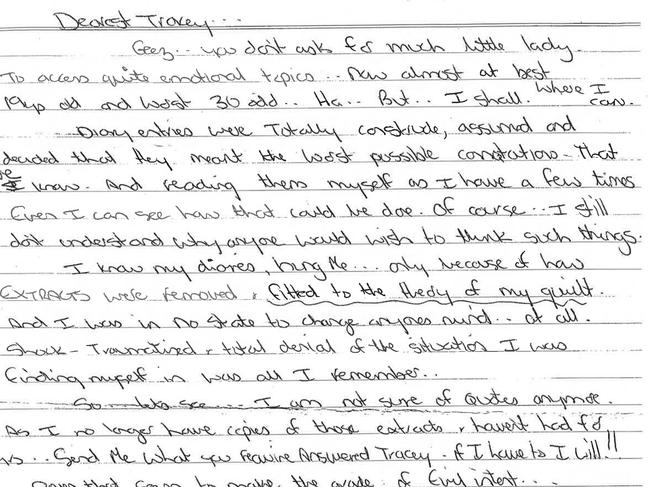 Dearest Tracey...
Geez.. you don't ask for much little lady.
To access quite emotional topics.. now almost at best
19yrs old and worst 30 odd.. Ha.. But.. I shall. Where I can.
Diary entries were Totally construde, assumed and
decided that they meant the worst possible conotations - That
I know. And reading them myself as I have a few times
Even I can see how that could be done. Of course... I still
don't understand why anyone would wish to think such things.
I know my diaries, hung Me... only because of how
EXTRACTS were removed & fitted to the theory of my guilt.
And I was in no state to change anyones mind.. at all.
Shock - Traumatized & total denial of the situation I was
finding myself in was all I remember..
So lets see... I am not sure of Quotes anymore.
As I no longer have copies of those extracts & havent had for
yrs... Send Me what you require Answered Tracey. If I have to I will!!
to make the grade of Evil intent...